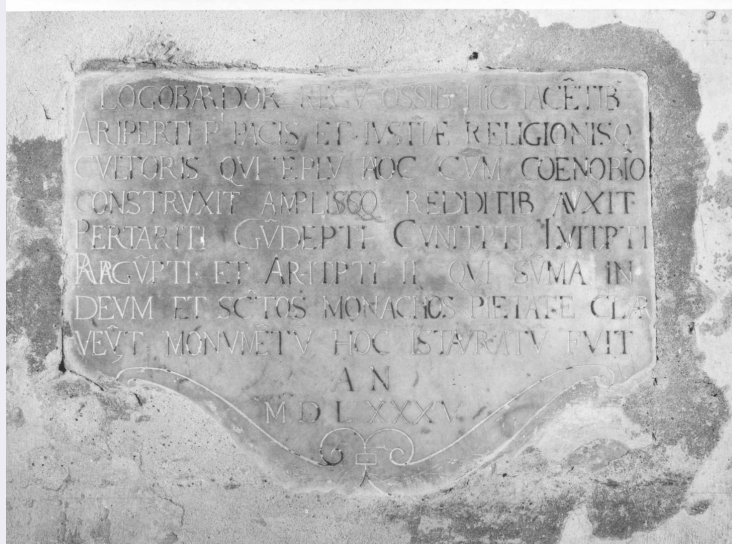 LOGOBARDOR REGV OSSIB HIC IACE᷃TIB
ARIPERTI P PACIS ET IVSTIÆ RELIGIONISQ
CVLTORIS QVI TE᷃PLV HOC CVM COENOBIO
CONSTRVXIT AMPLISSQ REDDITIB AVXIT
PERTARITI GVDEPTI CVNIPTI LVITPTI
RAGV᷃PTI ET ARIIPTI II QVI SVMA IN
DEVM ET SCTOS MONACHOS PIETATE CLA
VEVT MONVMETV HOC ISTAVRATV FVIT
AN
MDLXXXV